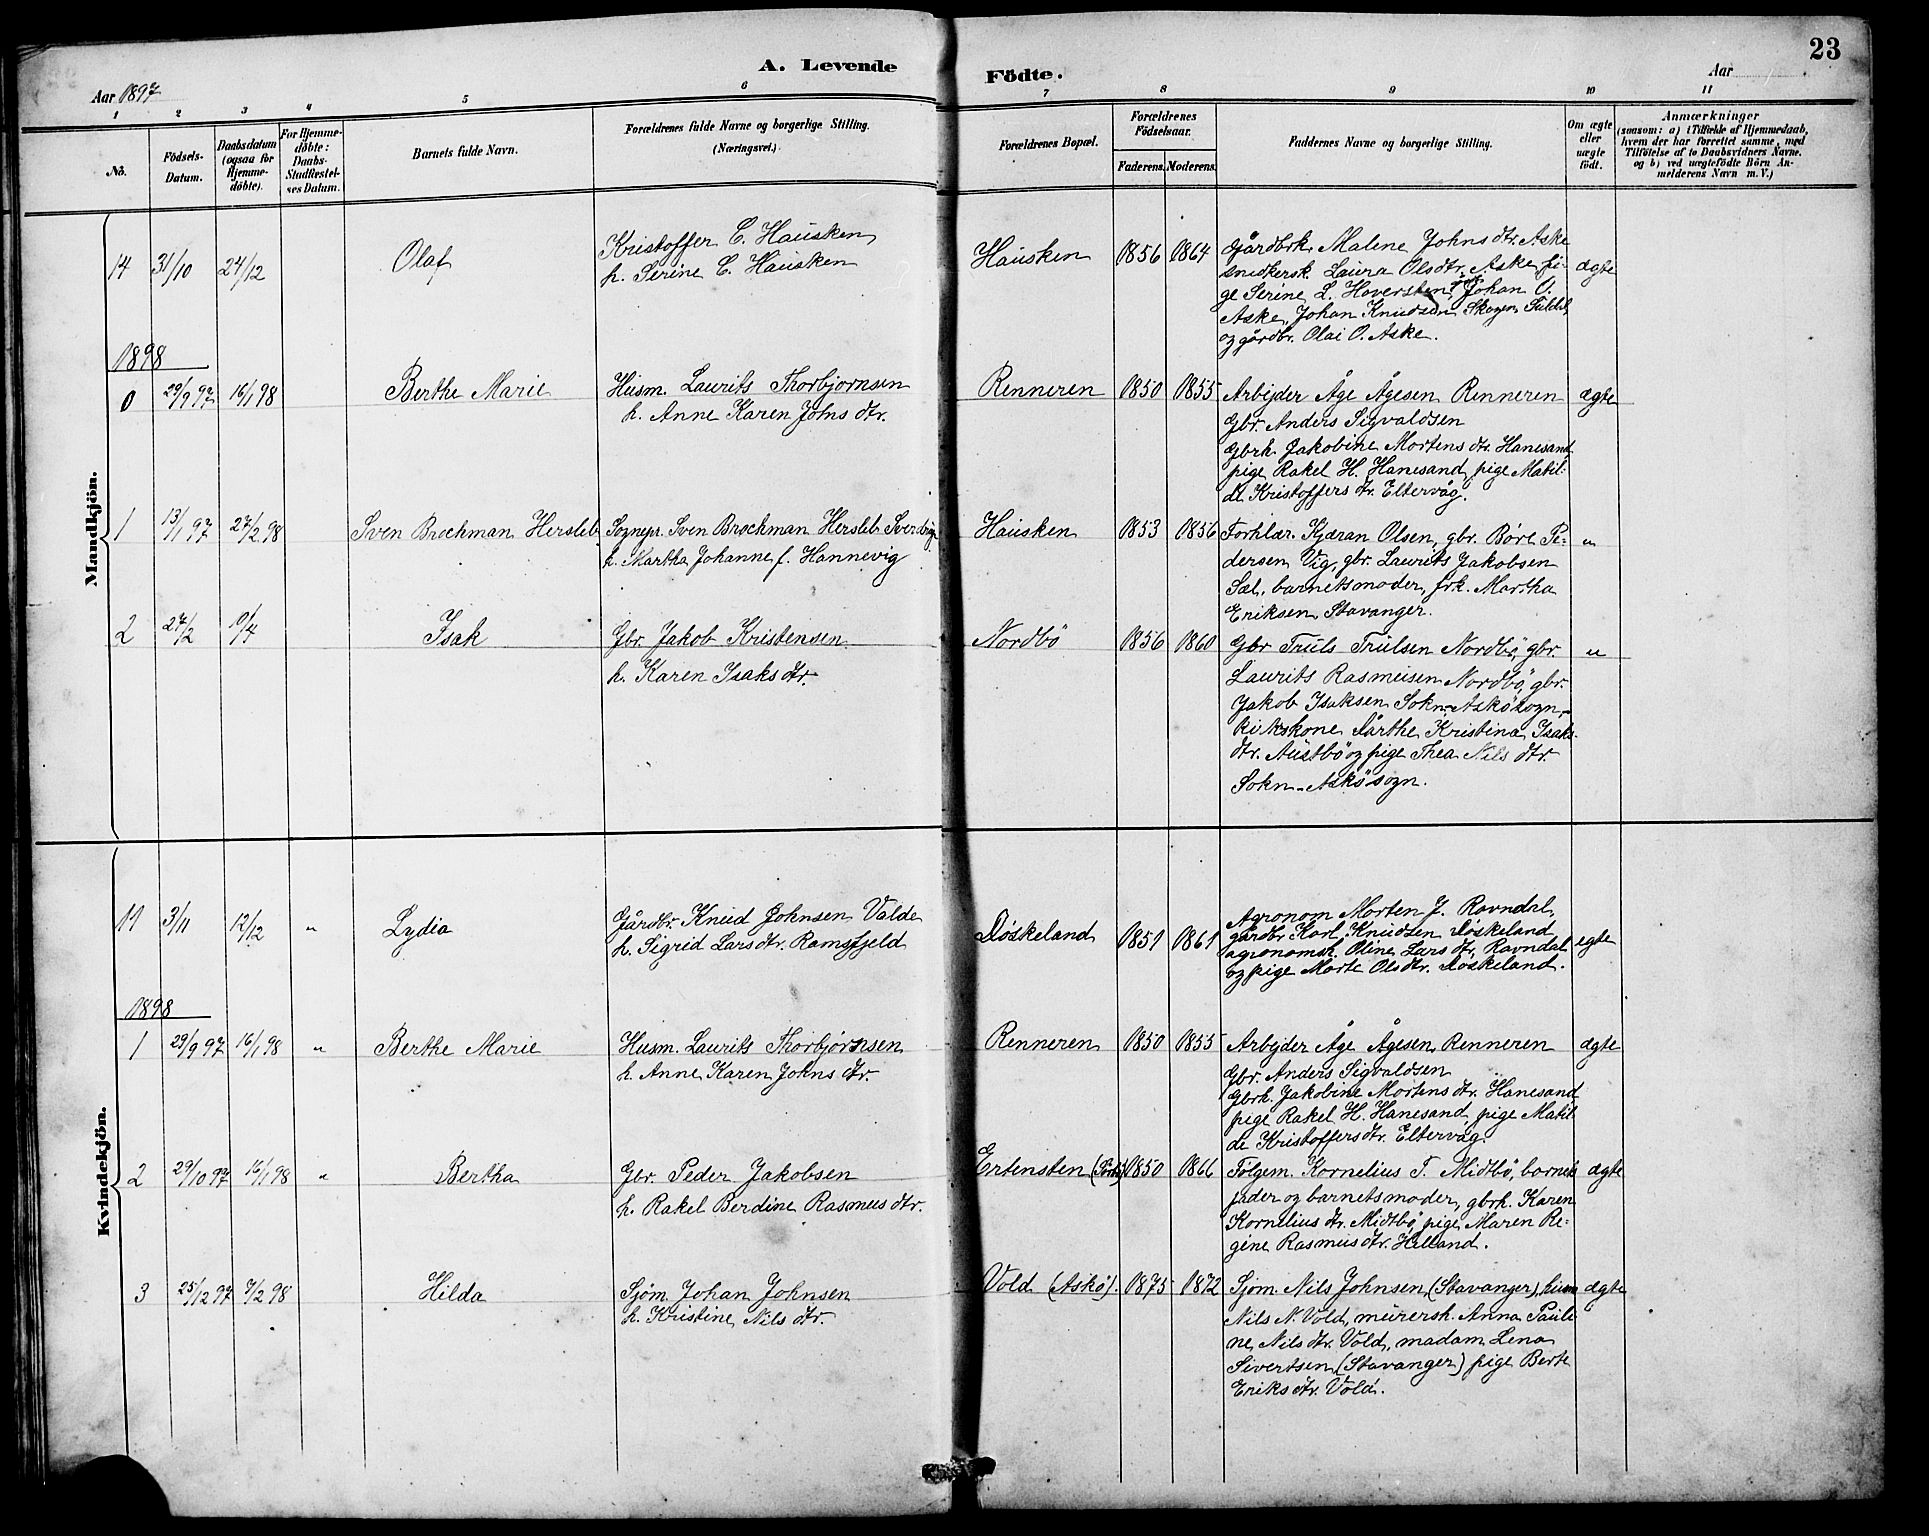 A. Levende
Födte.
23
Aar 1897
Aar
1 2 3 4 5 6 7 8 9 10 11
No.
Födsels-
Datum.
Daabsdatum
(ogsaa for
Hjemme-
döbte).
For Hjemme-
döbte:
Daabs-
Stadfæstel-
ses Datum.
Barnets fulde Navn.
Forældrenes fulde Navne og borgerlige Stilling.
(Næringsvei.)
Forældrenes Bopæl.
Forældrenes
Födselsaar.
Faderens. Moderens.
Faddernes Navne og borgerlige Stilling.
Om ægte
eller
uægte
født.
Anmærkninger
(saasom: a) i Tilfælde af Hjemmedaab,
hvem der har forrettet samme, med
Tilföielse af to Daabsvidners Navne.
og b) ved uægtefödte Börn An-
melderens Navn m. V.)
Mandkjön.
14 31/10 24/12 Olaf
Kristoffer C. Hausken
h. Serine C. Hausken
Hausken 1856 1864
Gårdbrk. Malene Johns dtr. Aske
snedkersk. Laura Olsdtr. Aske, pi-
ge Serine L. Haversten, Johan O.
Aske, Johan Knudsen Skogen Suldal
og gårdbr. Olai O. Aske.
ægte
1898
0 29/9 97 16/1 98 Berthe Marie
Husm. Laurits Thorbjørnsen
h. Anne Karen Johns dtr.
Renneren 1850 1855
Arbejder Åge Ågesen Renneren
Gbr. Anders Sigvaldsen
Gbrk. Jakobine Mortens dtr. Hanesand
pige Rakel H. Hanesand, pige Matil-
de Kristoffers dtr. Eltervåg.
ægte
1 13/1 97 27/2 98 Sven Brochman Hersleb
Sognepr. Sven Brochman Hersleb Sverdrup
h. Martha Johanne f. Hannevig
Hausken 1853 1856
Forhlær. Kjæran Olsen, gbr. Børe Pe-
dersen Vig, gbr. Laurits Jakobsen
Sel, barnets moder, frk. Martha
Eriksen Stavanger.
"
2 27/2 0/4 Isak
Gbr. Jakob Kristensen
h. Karen Isaks dtr.
Nordbö 1856 1860
Gbr Truls Trulsen Nordbö, gbr.
Laurits Rasmusen Nordbö, gbr.
Jakob Isaksen Sokn-Askösogn,
kirkskone Dårthe Kristina Isaks
dtr. Austbö og pige Thea Nils dtr
Sokn-Askösogn.
"
Kvindekjön.
11 3/11 12/12 " Lydia
Gårdbr. Knud Johnsen Valde
h. Sigrid Lars dtr. Ramsfjeld
Døskeland 1851 1861
Agronom Morten J. Ravndal,
gårdbr. Karl Knudsen Døskeland
agronomsk. Oline Lars dtr. Ravndal
og pige Marte Olsdtr. Døskeland.
egte
1898
1 29/9 97 16/1 98 " Berthe Marie
Husm. Laurits Thorbjørnsen
h. Anne Karen Johns dtr.
Renneren 1850 1855
Arbejder Åge Ågesen Renneren
Gbr. Anders Sigvaldsen
Gbrk. Jakobine Mortens dtr. Hanesand
pige Rakel H. Hanesand, pige Matil-
de Kristoffersdtr. Eltervåg
ægte
2 29/10 97 16/1 98 " Bertha
Gbr. Peder Jakobsen
h. Rakel Berdine Rasmus dtr.
Ertensten 1850 1866
Fölgem. Kornelius T. Midtbö, barnets
fader og barnets moder, gbrk. Karen
Kornelius dtr. Midtbö, pige Maren Re-
gine Rasmus dtr. Helland.
ægte
3 25/12 97 7/2 98 Hilda
Sjöm. Johan Johnsen
h. Kristine Nils dtr.
Vold (Askö). 1875 1872
Sjöm. Nils Johnsen (Stavanger), husm
Nils N. Vold, murersk. Anna Pauli-
ne Nils dtr. Vold, madam Lena
Sivertsen (Stavanger) pige Berte
Eriks dtr. Vold.
ægte